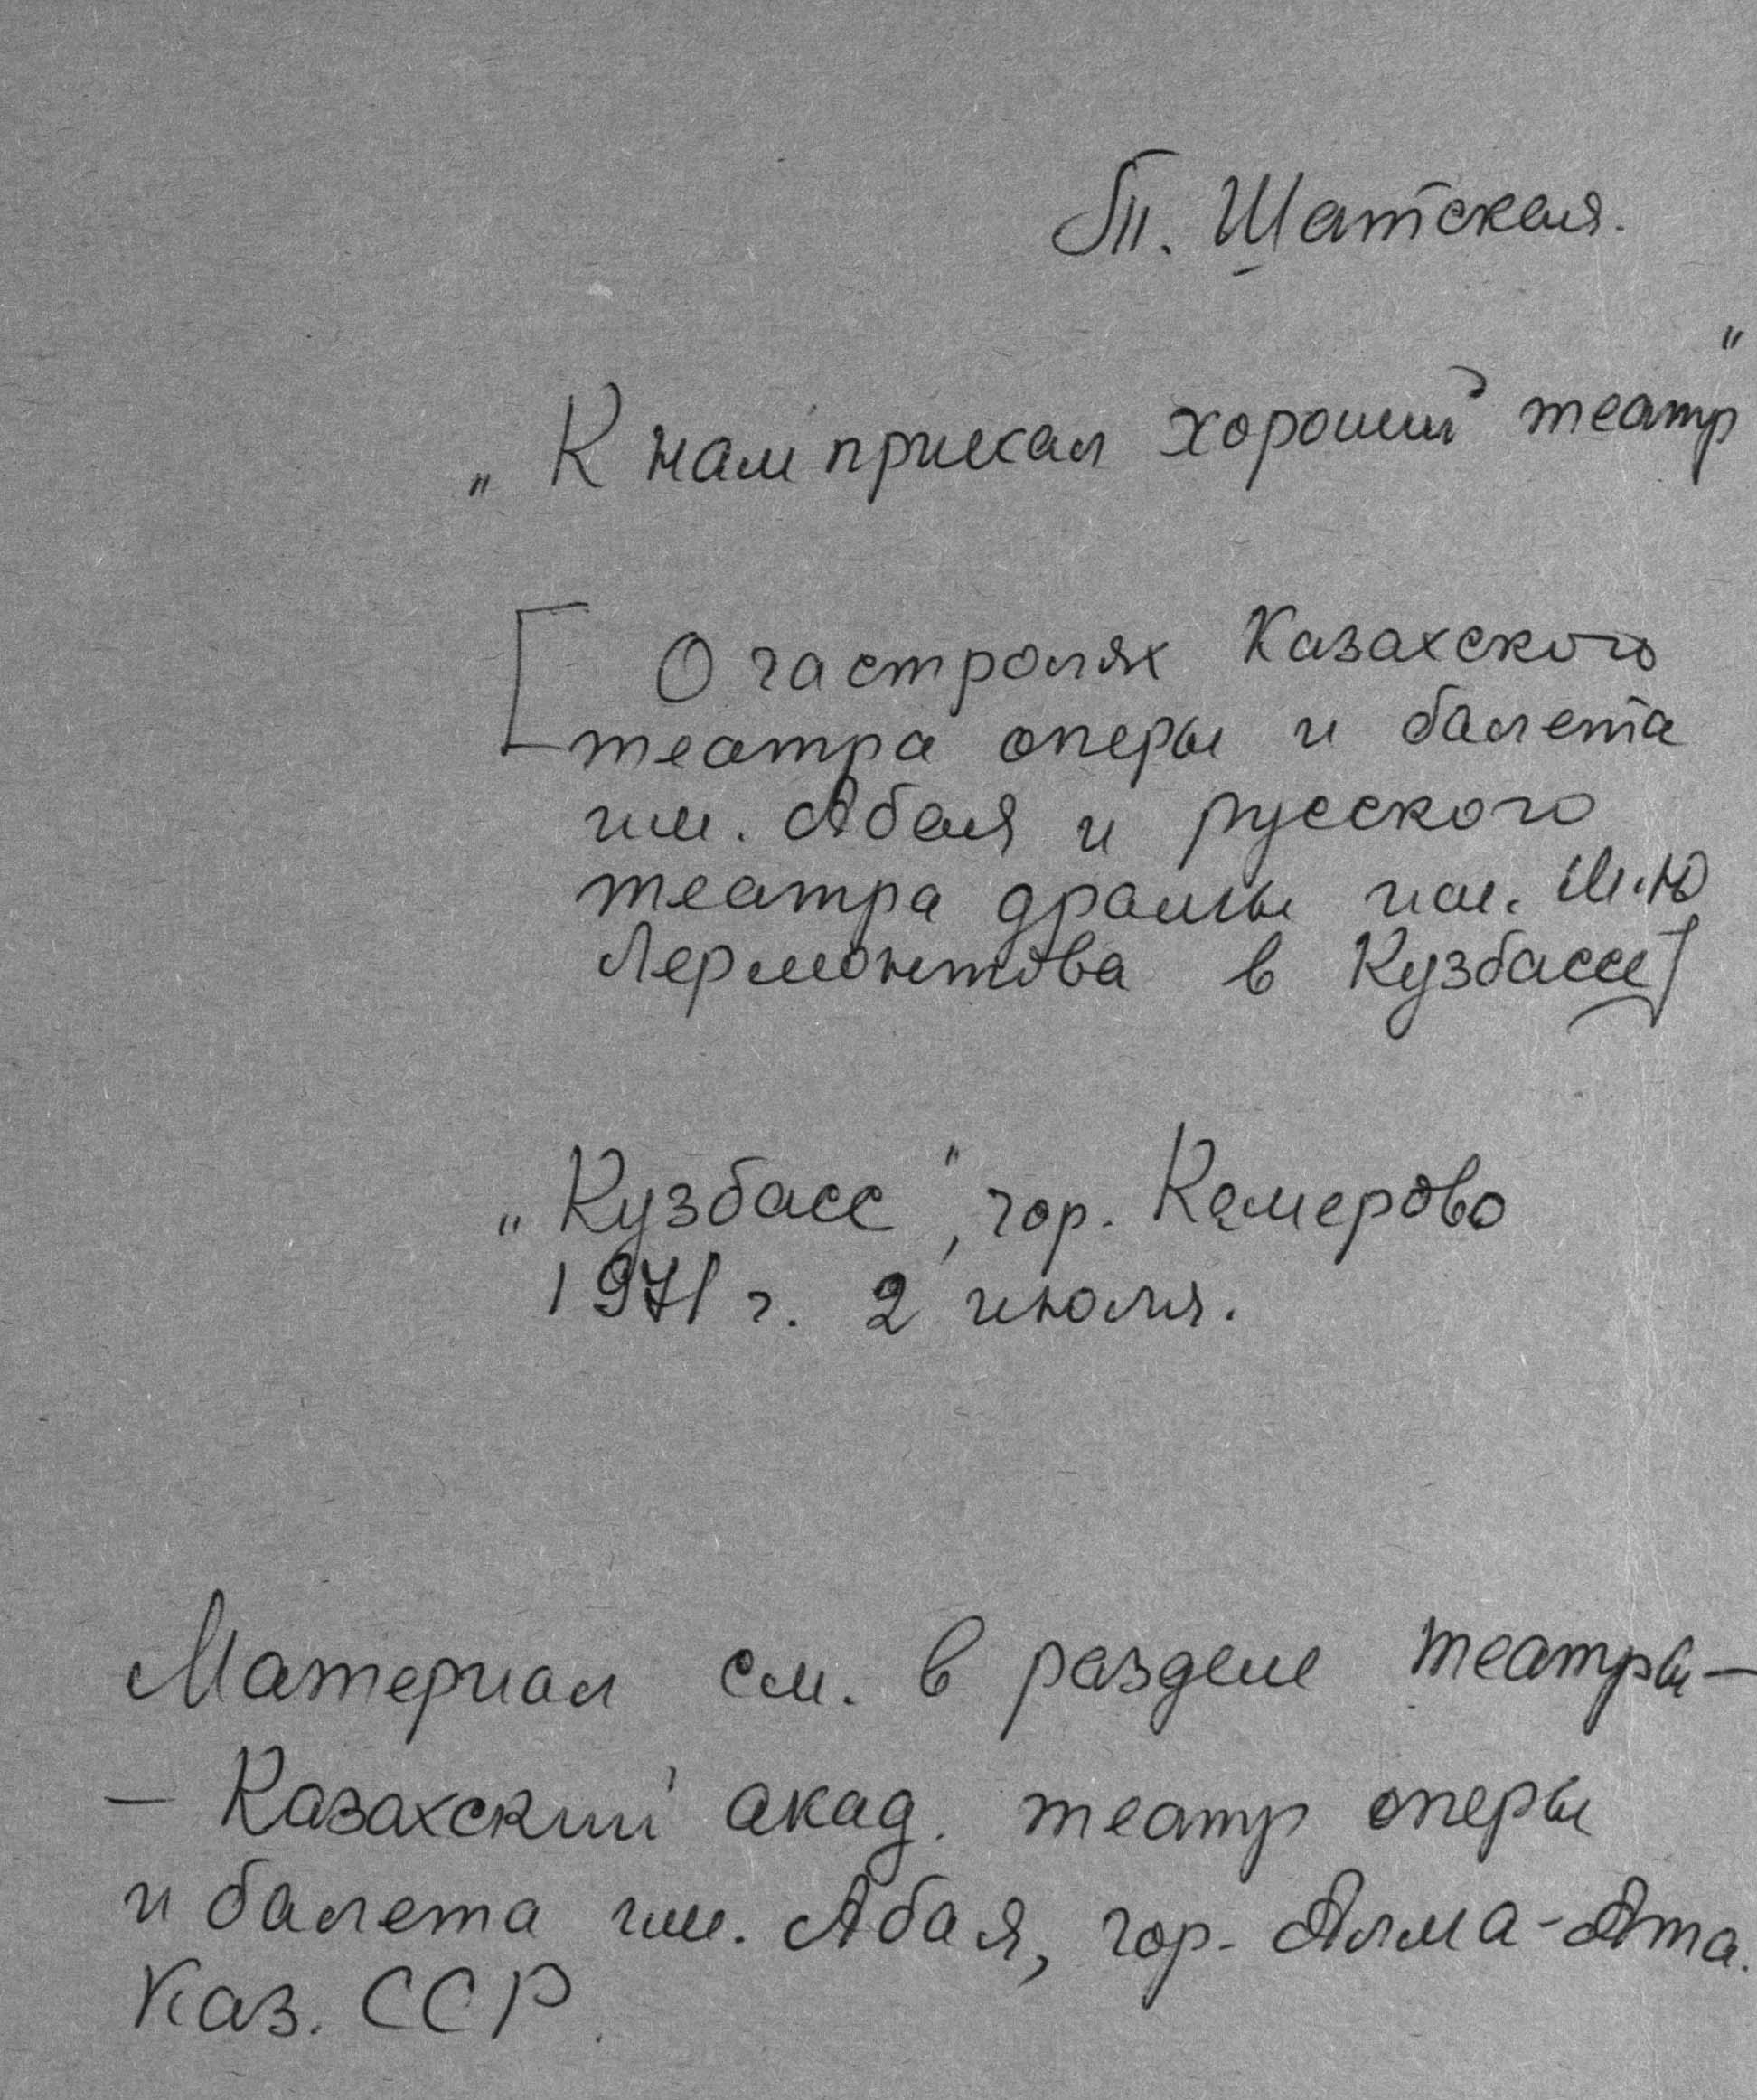 Т. Шатская.
„К нам приехал хороший театр"
[О гастролях Казахского
театра оперы и балета
им. Абая и русского
театра драмы им. М.Ю
Лермонтова в Кузбассе]
„Кузбасс", гор. Кемерово
1971 г. 2 июля.
Материал см. в разделе театры –
– Казахский акад. театр оперы
и балета им. Абая, гор. Алма-Ата.
Каз. ССР.